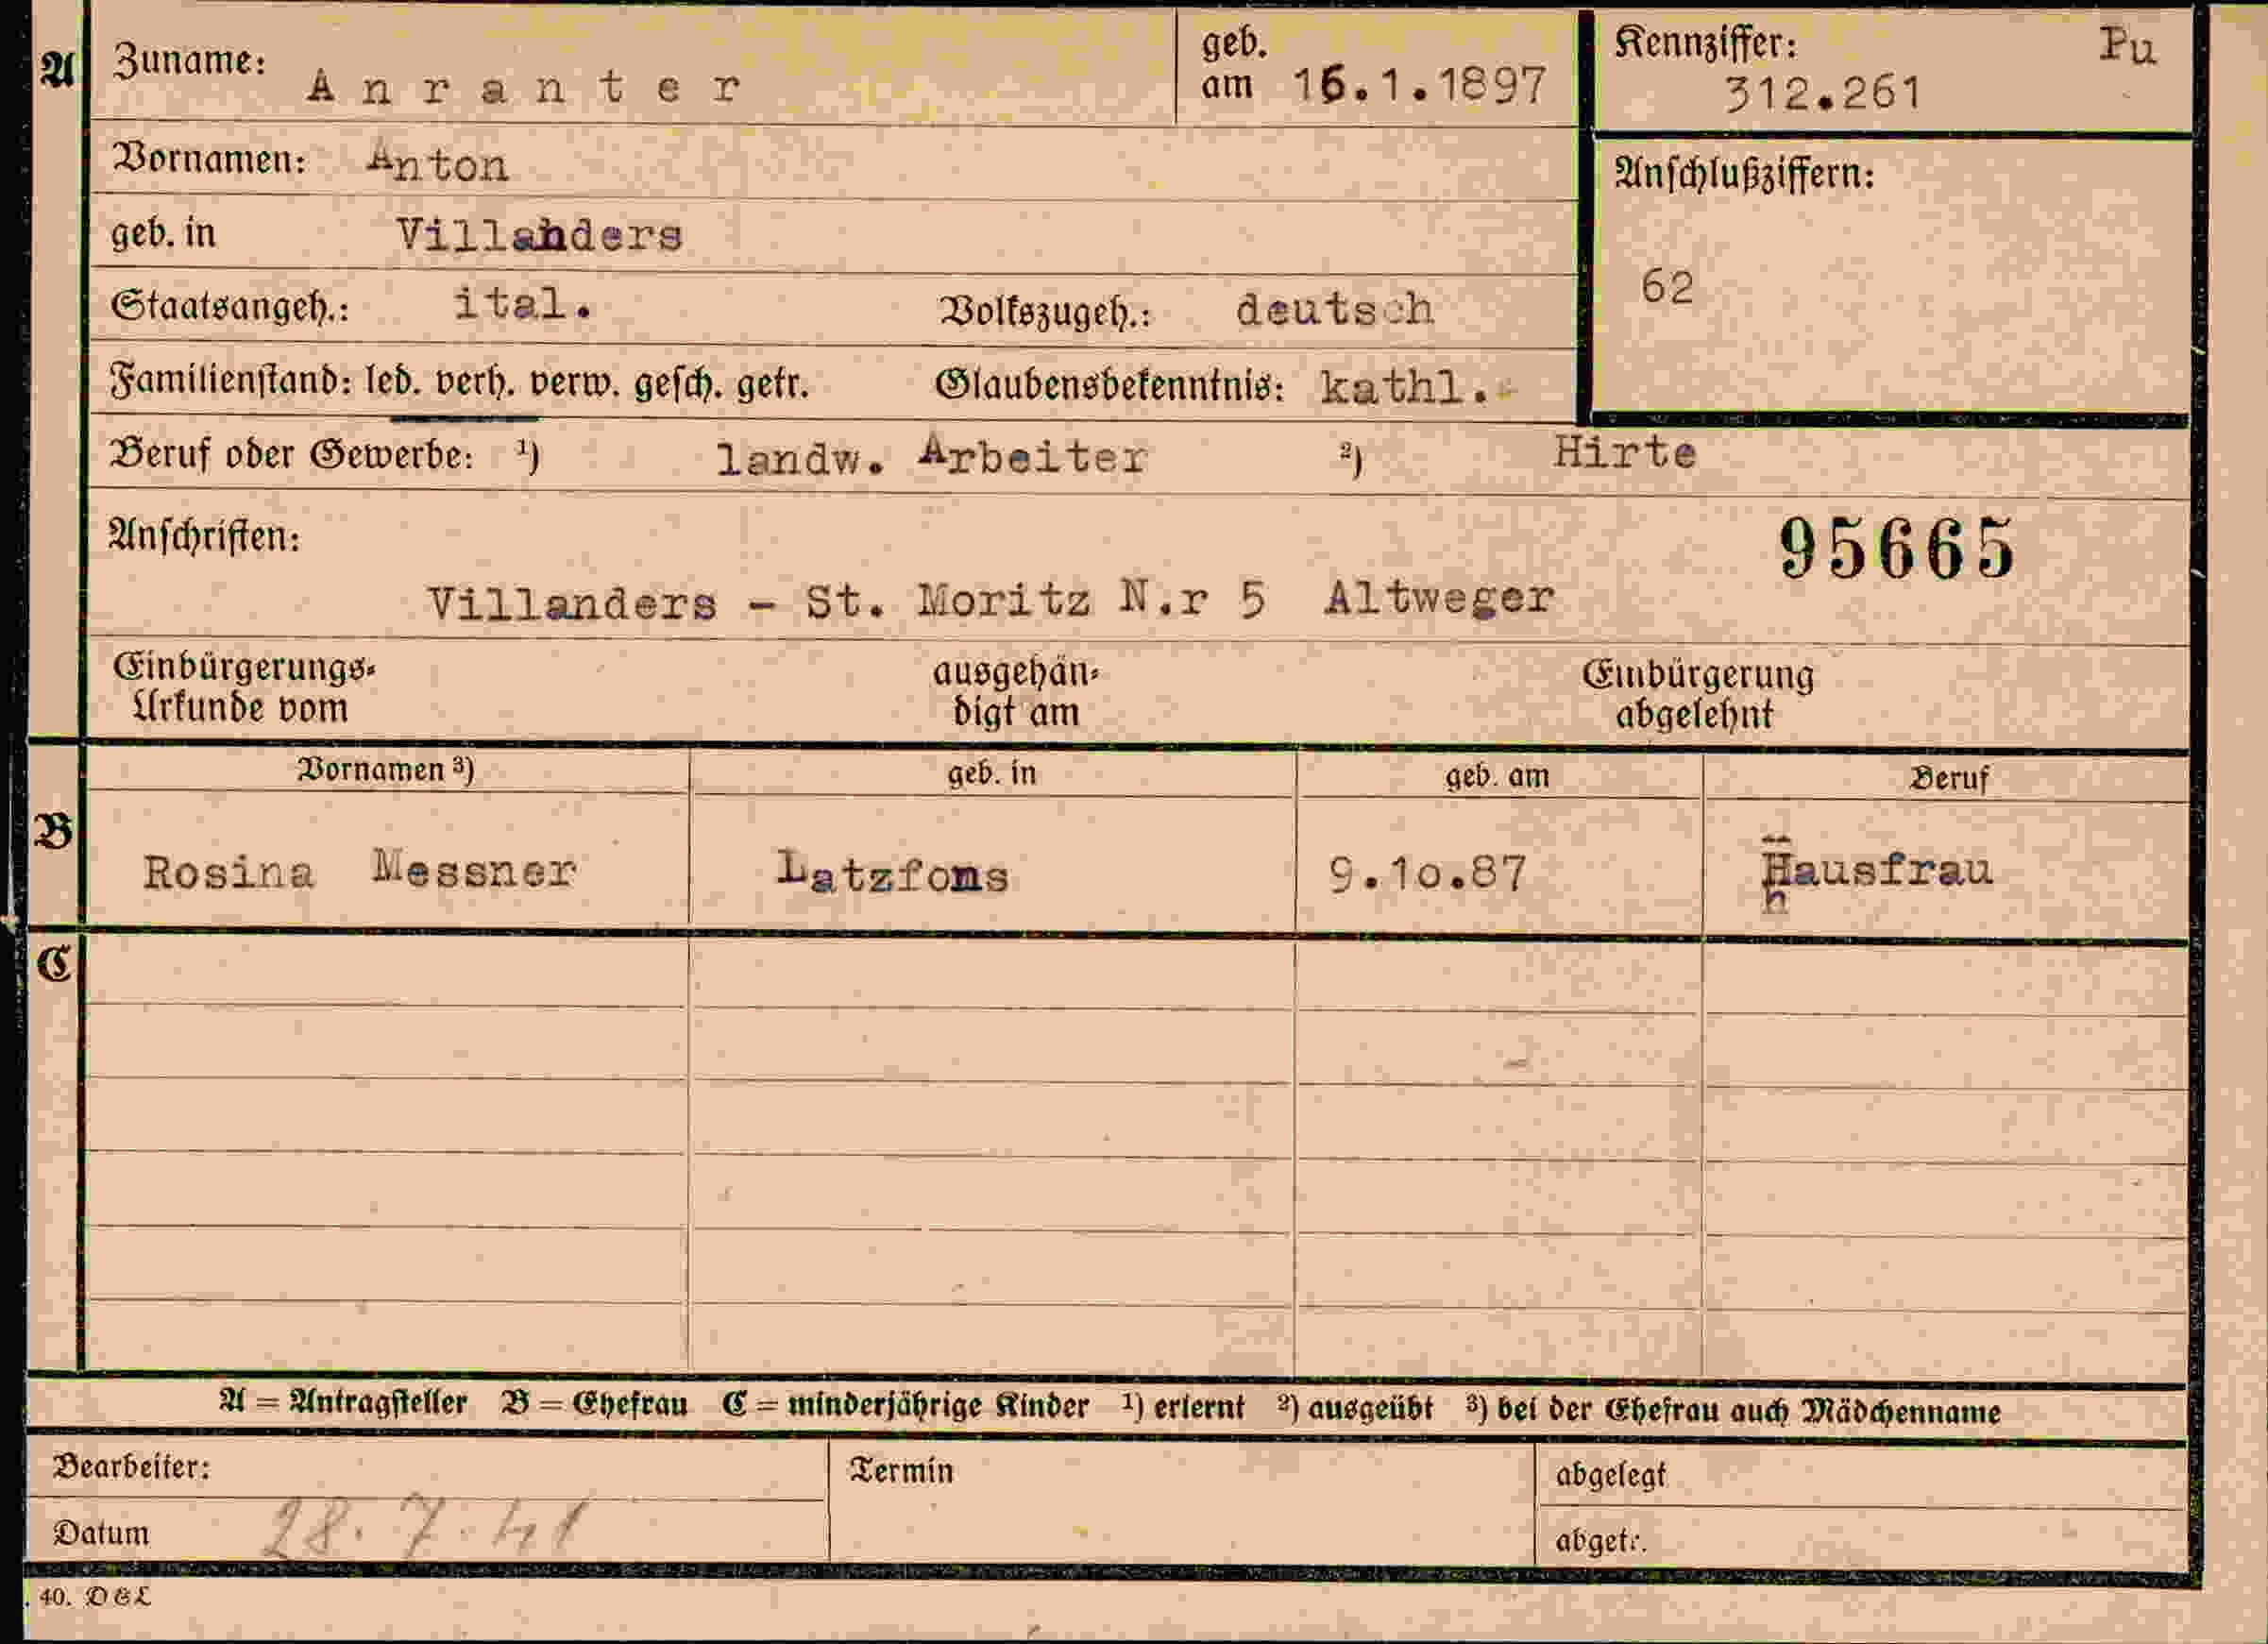 A Zuname: Anranter geb. am 16.1.1897 Kennziffer: 312.261 Pu
Vornamen: Anton Anschlußziffern:
geb. in Villanders 62
Staatsangeh.: ital. Volkszugeh.: deutsch
Familienstand: led. verh. verw. gesch. getr. Glaubensbekenntnis: kathl.
Beruf oder Gewerbe: ¹) landw. Arbeiter ²) Hirte
Anschriften: 95665
Villanders - St. Moritz N.r 5 Altweger
Einbürgerungs- ausgehän- Einbürgerung
Urkunde vom digt am abgelehnt
Vornamen ³) geb. in geb. am Beruf
B Rosina Messner Latzfons 9.10.87 Hausfrau
C
A = Antragsteller B = Ehefrau C = minderjährige Kinder ¹) erlernt ²) ausgeübt ³) bei der Ehefrau auch Mädchenname
Bearbeiter: Termin abgelegt
Datum 28.7.41 abgetr.
40. D & L